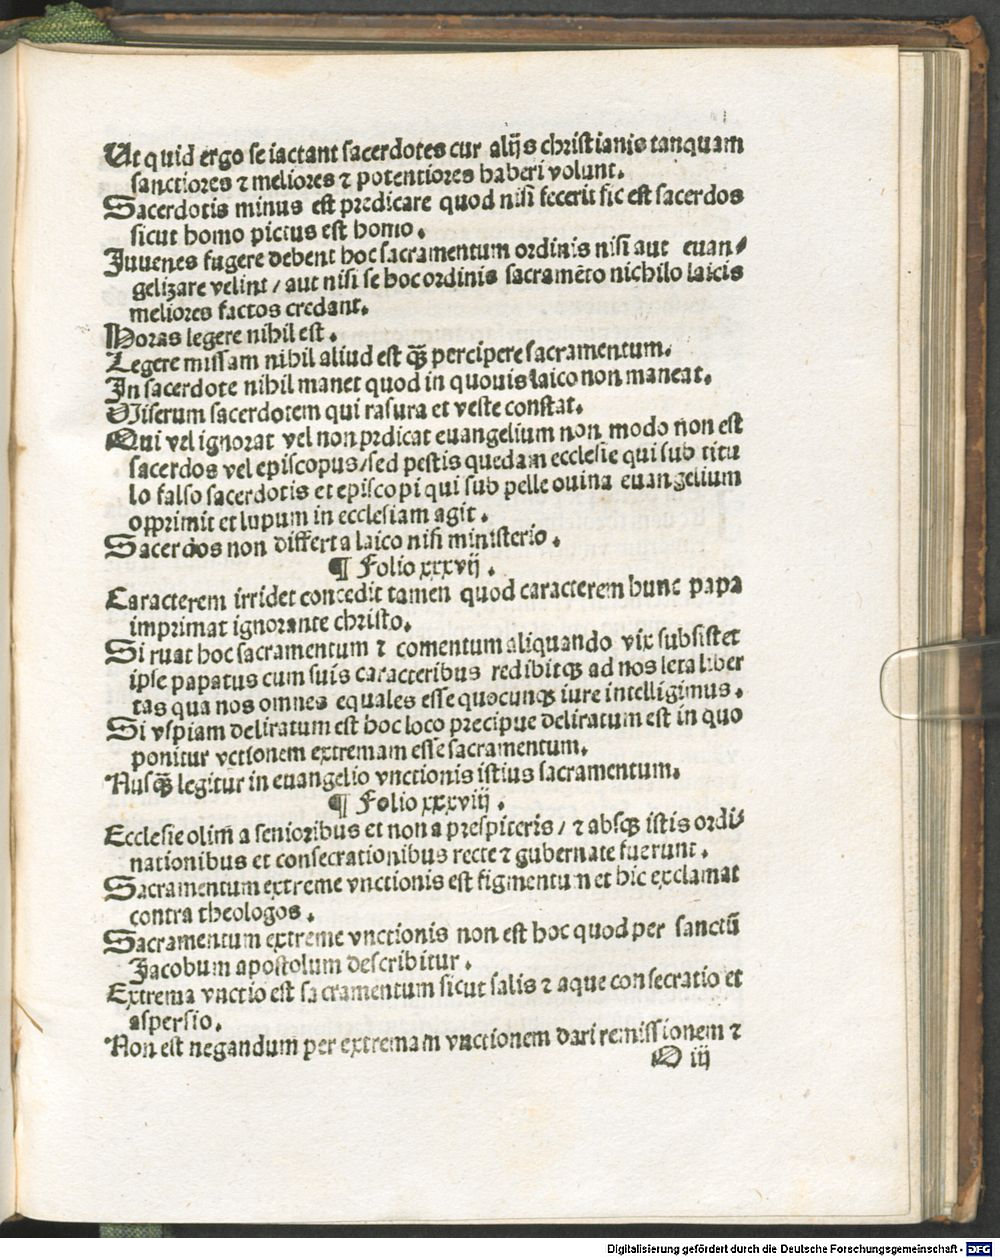 Ut quid ergo se iactant sacerdotes cur alijs christianis tanquam
sanctiores ⁊ meliores ⁊ potentiores haberi volunt.
Sacerdotis minus est predicare quod nisi fecerit sic est sacerdos
sicut homo pictus est homo.
Iuvenes fugere debent hoc sacramentum ordinis nisi aut euan⸗
gelizare velint / aut nisi se hoc ordinis sacramēto nichilo laicis
meliores factos credant.
Horas legere nihil est.
Legere missam nihil aliud est qꝫ percipere sacramentum.
In sacerdote nihil manet quod in quouis laico non maneat.
Miserum sacerdotem qui rasura et veste constat.
Qui vel ignorat vel non prdicat euangelium non modo non est
sacerdos vel episcopus/sed pestis quedam ecclesie qui sub titu
lo falso sacerdotis et episcopi qui sub pelle ouina euangelium
opprimit et lupum in ecclesiam agit.
Sacerdos non differt a laico nisi ministerio.
¶ Folio xxxvij.
Caracterem irridet concedit tamen quod caracterem hunc papa
imprimat ignorante christo.
Si ruat hoc sacramentum ⁊ comentum aliquando vix subsistet
ipse papatus cum suis caracteribus redibitqꝫ ad nos leta liber
tas qua nos omnes equales esse quocunqꝫ iure intelligimus.
Si vspiam deliratum est hoc loco precipue deliratum est in quo
ponitur vctionem extremam esse sacramentum.
Nusqꝫ legitur in euangelio vnctionis istius sacramentum.
¶ Folio xxxviij.
Ecclesie olim a senioribus et non a prespiteris / ⁊ absqꝫ istis ordi⸗
nationibus et consecrationibus recte ⁊ gubernate fuerunt.
Sacramentum extreme vnctionis est figmentum et hic exclamat
contra theologos.
Sacramentum extreme vnctionis non est hoc quod per sanctū
Jacobum apostolum describitur.
Extrema vnctio est sacramentum sicut salis ⁊ aque consecratio et
aspersio.
Non est negandum per extremam vnctionem dari remissionem ⁊
D iij
Digitalisierung gefördert durch die Deutsche Forschungsgemeinschaft - DFG